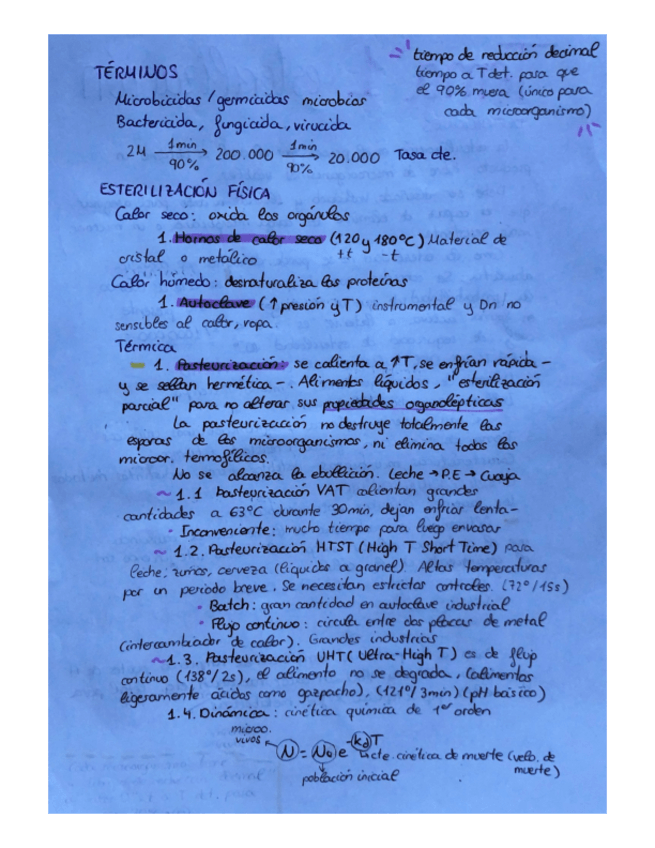 tiempo de reducción decimal
tiempo a T det. para que
el 90% muera (único para
cada microorganismo)
TÉRMINOS
Microbicidas / germicidas microbios
Bactericida, fungicida, virucida
2M 1min 90% → 200.000 1min 90% → 20.000 Tasa de.
ESTERILIZACIÓN FÍSICA
Calor seco: oxida los orgánulos
1. Hornos de calor seco (120 y 180ºC) Material de
+t -t
cristal o metálico
Calor húmedo: desnaturaliza las proteínas
1. Autoclave (↑ presión y T) instrumental y Dn no
sensibles al calor, ropa
Térmica
1. Pasteurización: se calienta a ↑T, se enfrían rápida-
y se sellan hermética-. Alimentos líquidos, "esterilización
parcial" para no alterar sus propiedades organolépticas
La pasteurización no destruye totalmente las
esporas de los microorganismos, ni elimina todos los
microor. termofílicos.
No se alcanza la ebullición. Leche → P.E → Cuaja
~ 1.1 Pasteurización VAT calientan grandes
cantidades a 63ºC durante 30min, dejan enfriar lenta-
• Inconveniente: mucho tiempo para luego envasar
~ 1.2. Pasteurización HTST (High T Short Time) para
leche, zumos, cerveza (líquidos a granel) Altas temperaturas
por un periodo breve. Se necesitan estrictos controles. (72º/15s)
• Batch: gran cantidad en autoclave industrial
• Flujo continuo: circula entre dos placas de metal
(intercambiador de calor). Grandes industrias
~ 1.3. Pasteurización UHT (Ultra-High T) es de flujo
continuo (138º/2s), el alimento no se degrada, (alimentos
ligeramente ácidos como gazpacho), (121º/3min) (pH básico)
1.4. Dinámica: cinética química de 1er orden
microo.
vivos
N = N₀ e^-(kd)T cte. cinética de muerte (velo. de
muerte)
población inicial